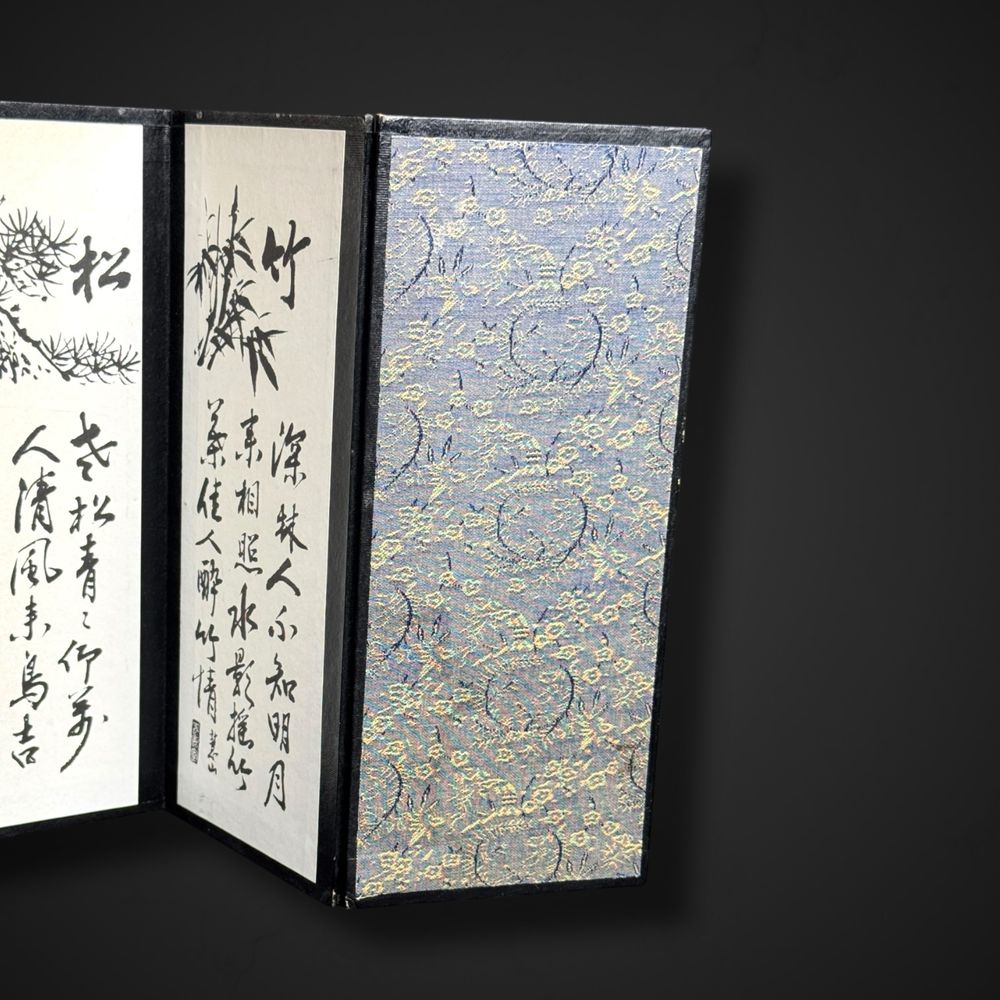 竹
深林人不知明月
来相照水影搖竹
葉佳人酔竹情
松
老松青々仰萬
人清風来鳥吉